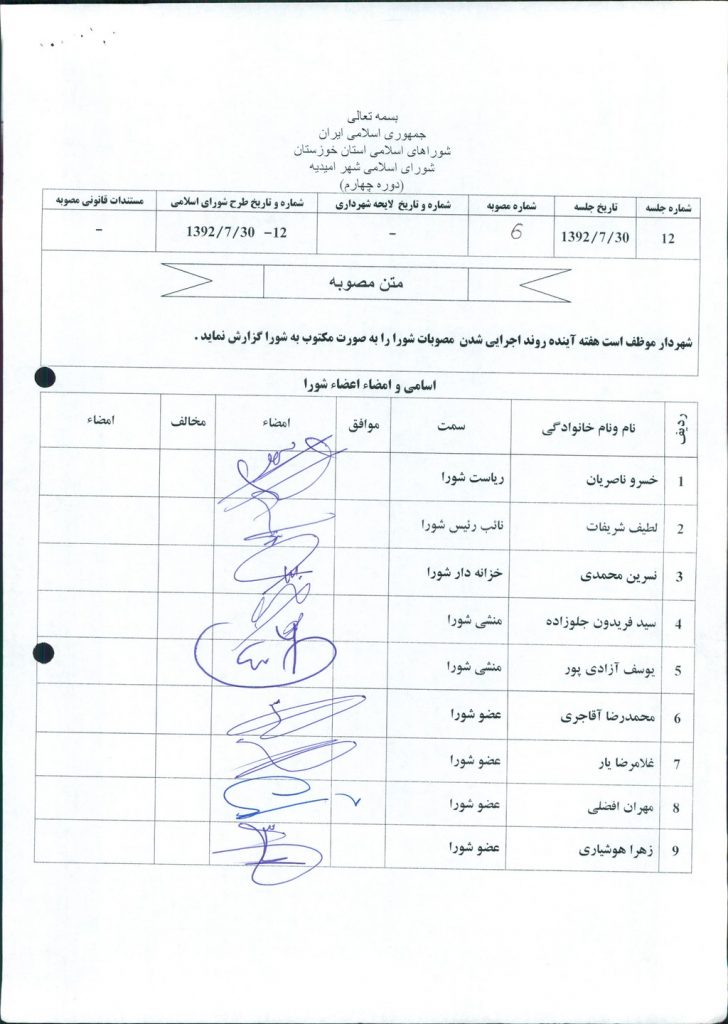 بسمه تعالی
جمهوری اسلامی ایران
شوراهای اسلامی استان خوزستان
شورای اسلامی شهر امیدیه
(دوره چهارم)
شماره جلسه تاریخ جلسه شماره مصوبه شماره و تاریخ لایحه شهرداری شماره و تاریخ طرح شورای اسلامی مستندات قانونی مصوبه
12 1392/7/30 6 - 12- 1392/7/30 -
متن مصوبه
شهردار موظف است هفته آینده روند اجرایی شدن مصوبات شورا را به صورت مکتوب به شورا گزارش نماید .
اسامی و امضاء اعضاء شورا
ردیف نام ونام خانوادگی سمت موافق امضاء مخالف امضاء
1 خسرو ناصریان ریاست شورا
2 لطیف شریفات نائب رئیس شورا
3 نسرین محمدی خزانه دار شورا
4 سید فریدون جلوزاده منشی شورا
5 یوسف آزادی پور منشی شورا
6 محمدرضا آقاجری عضو شورا
7 غلامرضا یار عضو شورا
8 مهران افضلی عضو شورا
9 زهرا هوشیاری عضو شورا